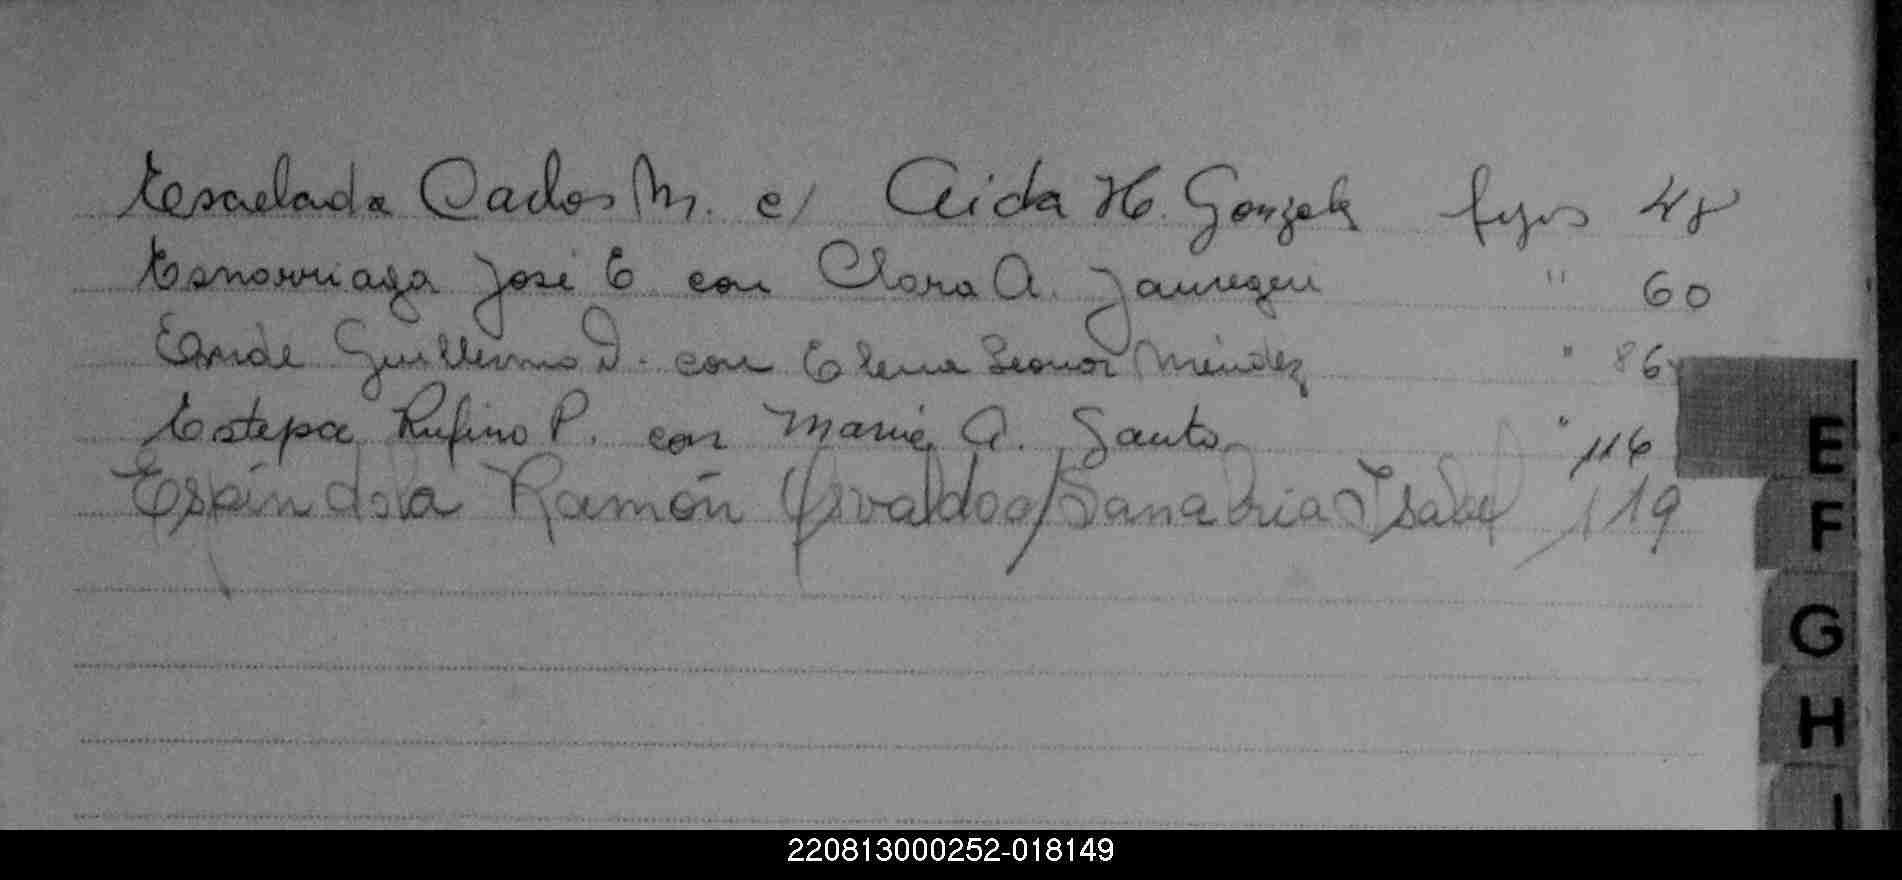 Escalada Carlos M. c/ Aida H. Gonzalez fojas 48
José E con Clara A. Jauregui " 60
Guillermo D. con Elena Leonor Méndez " 86
Estepa Rufino P. con María A. Santos " 116
Espíndola Ramón Osvaldo c/ Sanabria Isabel 119
E
F
G
H
I
220813000252-018149